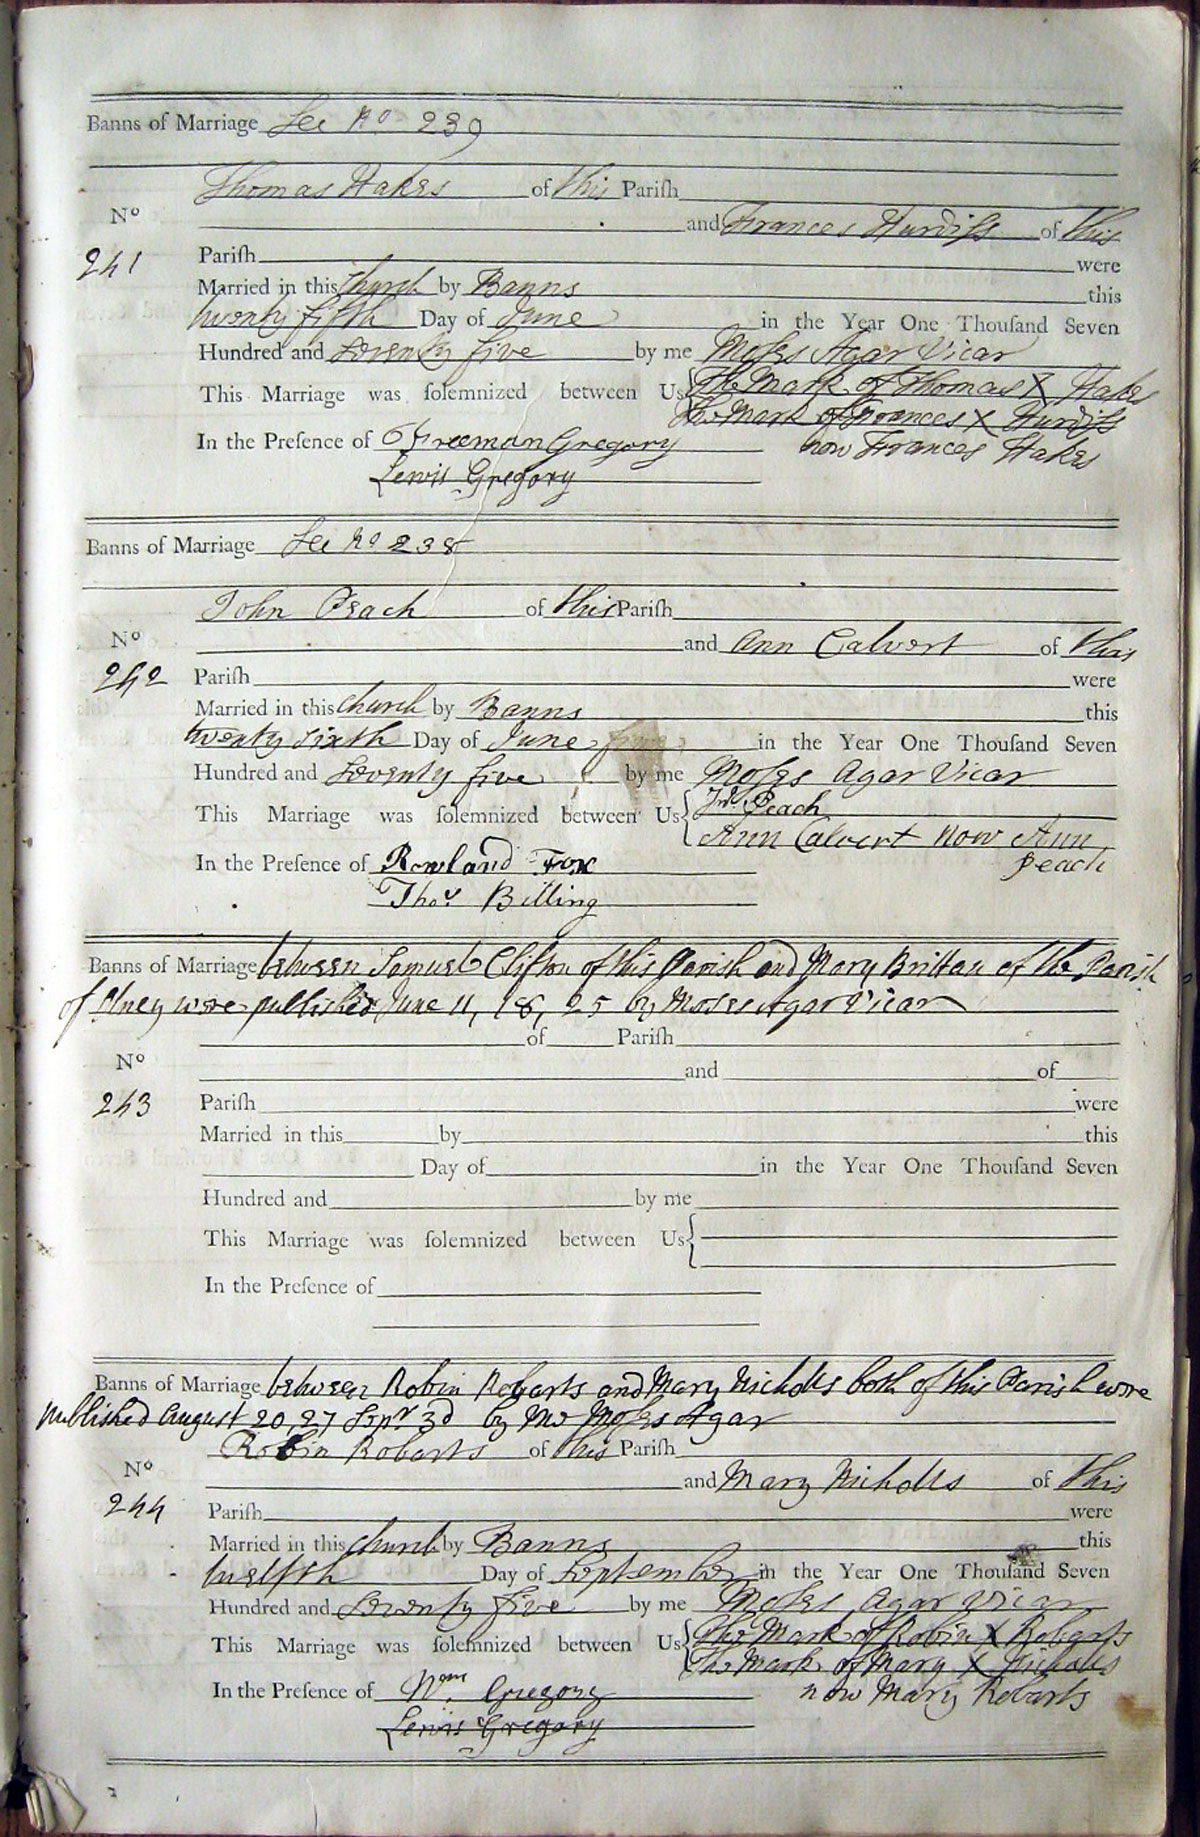 Banns of Marriage See No 239
Thomas Hakes of this Pariſh
No and Frances Hurdiſs of this
241 Pariſh were
Married in this Church by Banns this
twenty fifth Day of June in the Year One Thouſand Seven
Hundred and Seventy five by me Moſes Agar Vicar
This Marriage was ſolemnized between Us The Mark of Thomas X Hakes
The Mark of Frances X Hurdiſs
In the Preſence of Freeman Gregory now Frances Hakes
Lewis Gregory
Banns of Marriage See No 238
John Peach of this Pariſh
No and Ann Calvert of this
242 Pariſh were
Married in this Church by Banns this
twenty Sixth Day of June in the Year One Thouſand Seven
Hundred and Seventy five by me Moſes Agar Vicar
This Marriage was ſolemnized between Us Jno. Peach
Ann Calvert Now Ann
In the Preſence of Rowland Fox Peach
Thos. Billing
Banns of Marriage between Samuel Clifton of this Parish and Mary Brittan of the Parish
of Olney were published June 11, 18, 25 by Moses Agar Vicar
of Pariſh
No and of
243 Pariſh were
Married in this by this
Day of in the Year One Thouſand Seven
Hundred and by me
This Marriage was ſolemnized between Us
In the Preſence of
Banns of Marriage between Robin Robarts and Mary Nicholls both of this Parish were
published August 20, 27 Sepr 3d by me Moſes Agar
Robin Robarts of this Pariſh
No and Mary Nicholls of this
244 Pariſh were
Married in this Church by Banns this
twelfth Day of September in the Year One Thouſand Seven
Hundred and Seventy five by me Moſes Agar Vicar
This Marriage was ſolemnized between Us The Mark of Robin X Robarts
The Mark of Mary X Nicholls
In the Preſence of Wm. Gregory now Mary Robarts
Lewis Gregory